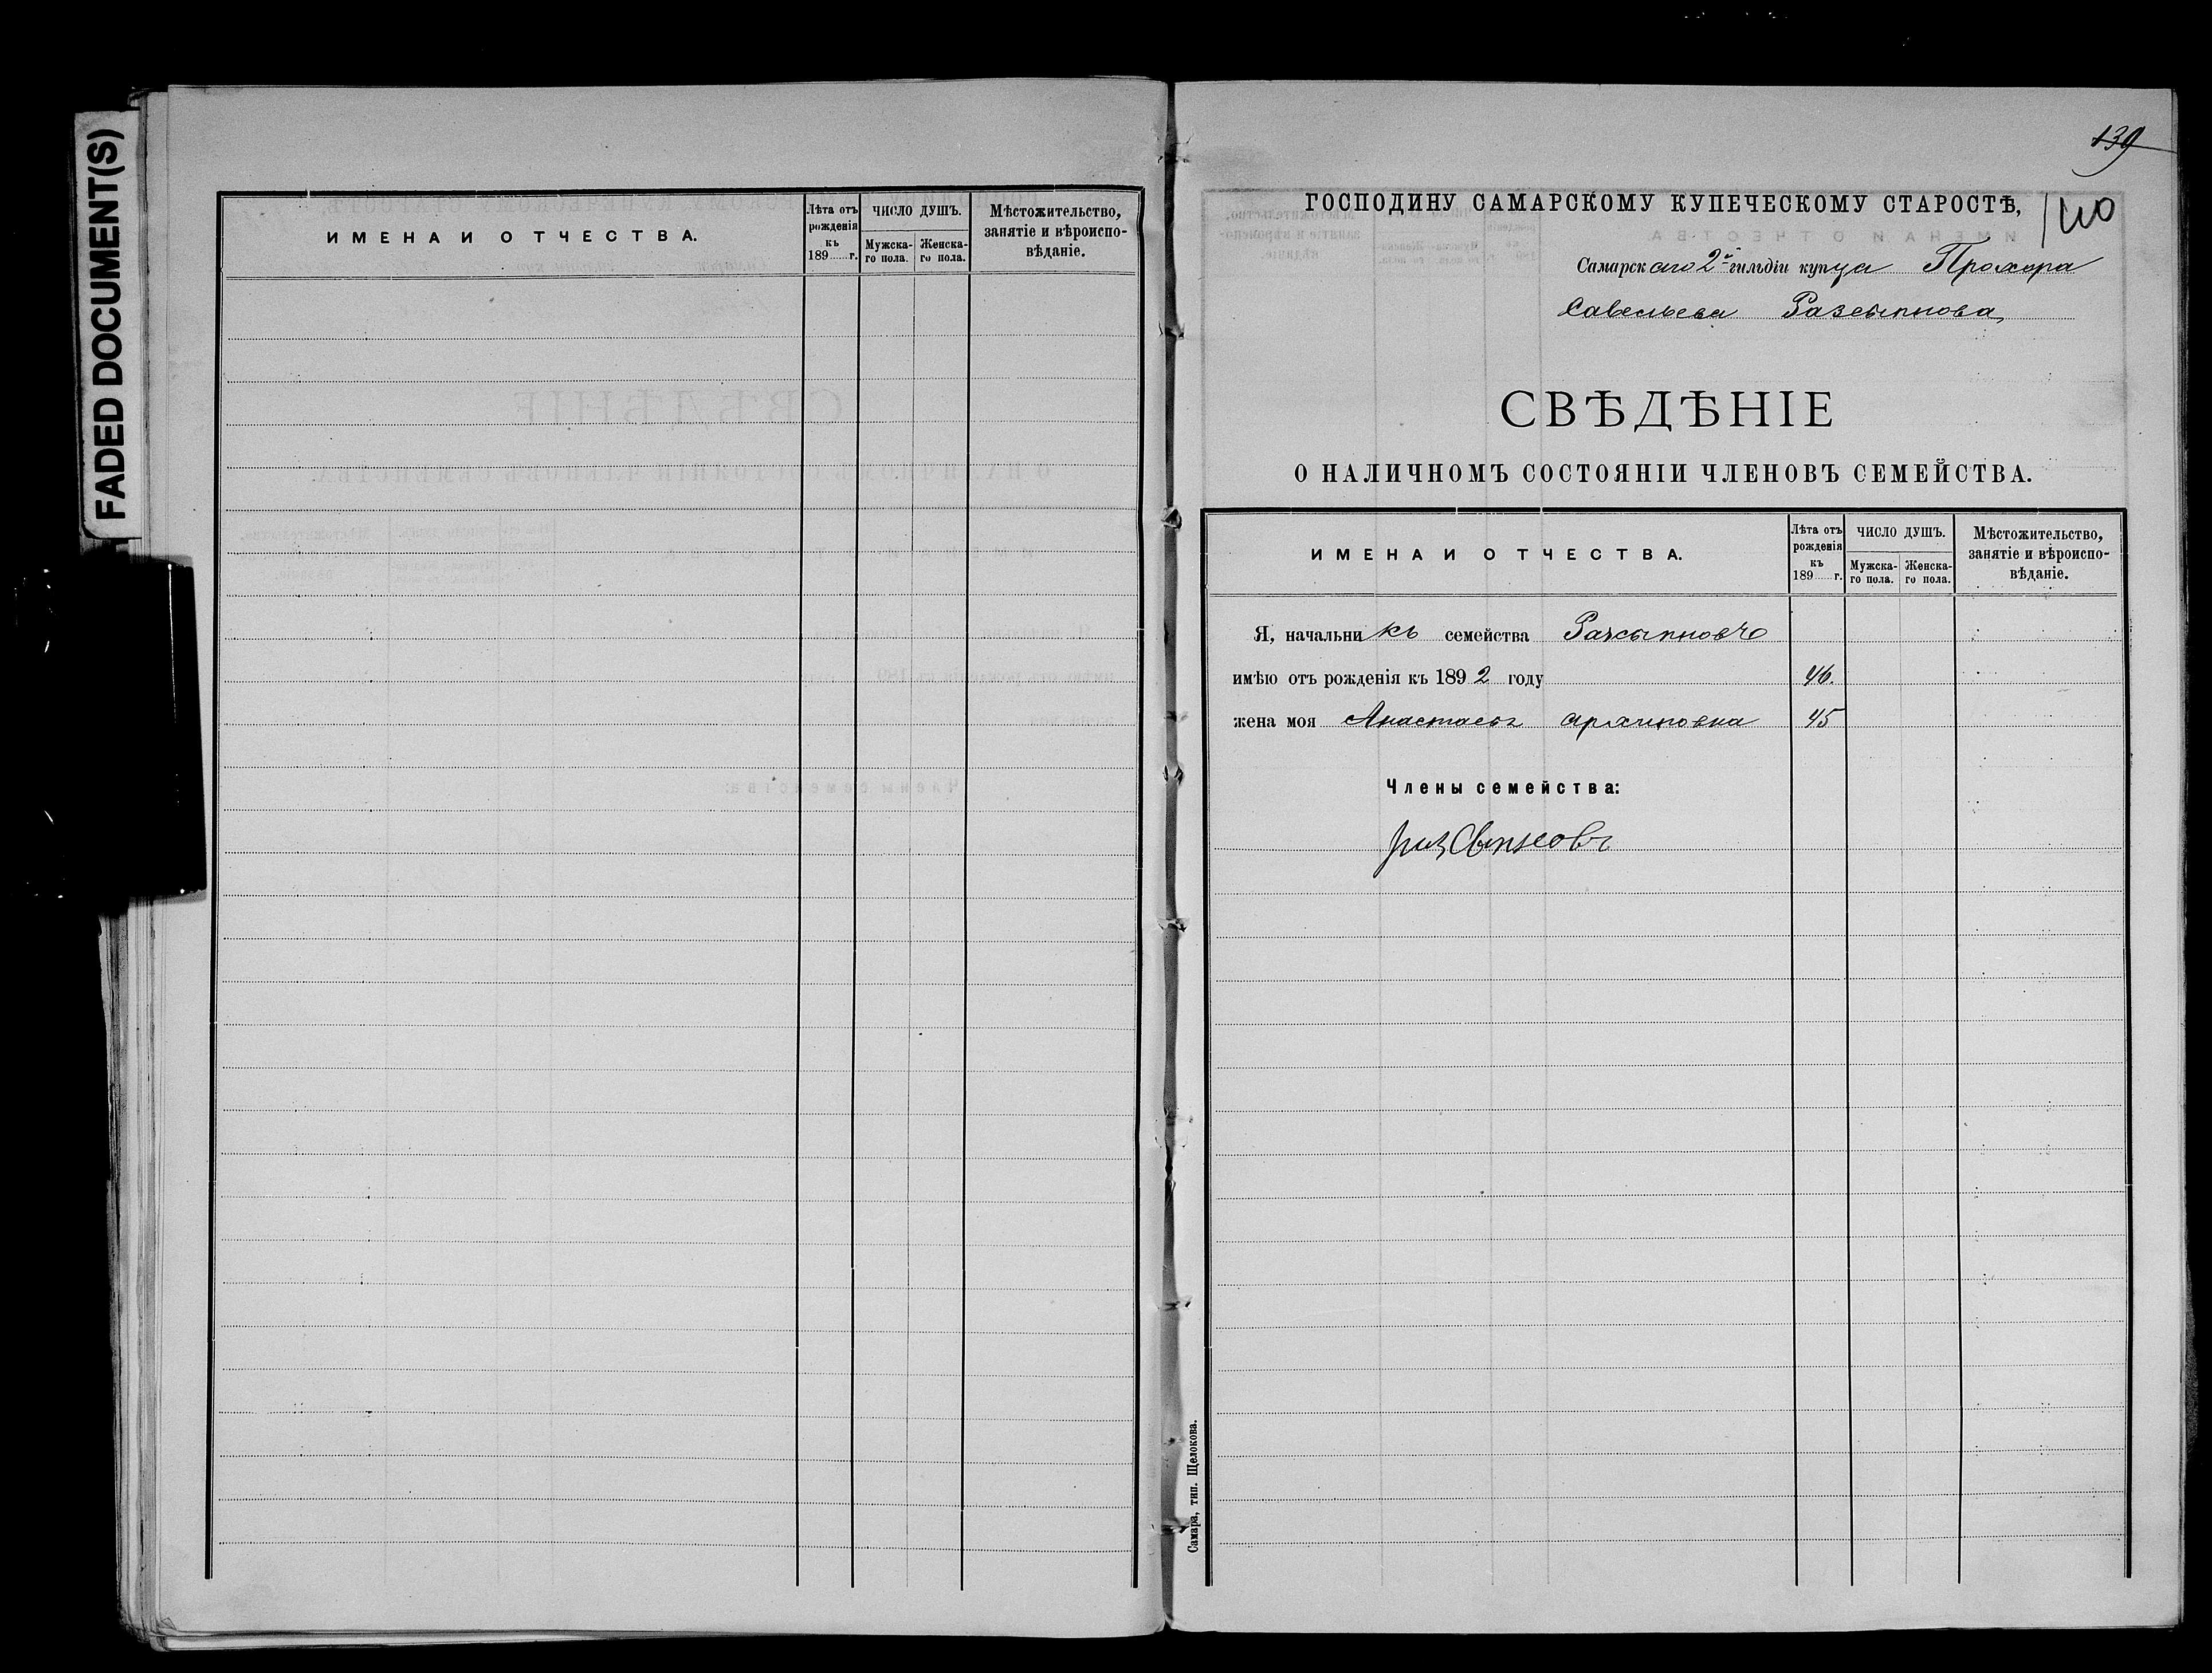 FADED DOCUMENT(S)
ИМЕНА И ОТЧЕСТВА.
Лѣта отъ рожденія къ 189......г.
ЧИСЛО ДУШЪ.
Мужска-го пола.
Женска-го пола.
Мѣстожительство, занятіе и вѣроиспо-вѣданіе.
139
ГОСПОДИНУ САМАРСКОМУ КУПЕЧЕСКОМУ СТАРОСТѢ,
140
Самарскаго 2й гильдіи купца Прохора
Савельева Разсыпнова,
СВѢДѢНІЕ
О НАЛИЧНОМЪ СОСТОЯНІИ ЧЛЕНОВЪ СЕМЕЙСТВА.
ИМЕНА И ОТЧЕСТВА.
Лѣта отъ рожденія къ 189......г.
ЧИСЛО ДУШЪ.
Мужска-го пола.
Женска-го пола.
Мѣстожительство, занятіе и вѣроиспо-вѣданіе.
Я, начальникъ семейства Разсыпновъ
имѣю отъ рожденія къ 1892 году 46.
жена моя Анастасья Архиповна 45
Члены семейства:
Самара, тип. Щелокова.